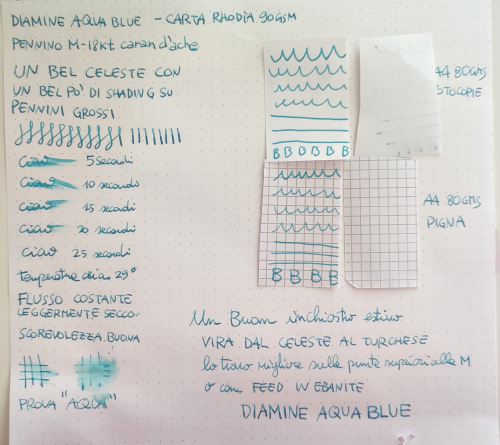 DIAMINE AQUA BLUE - CARTA RHODIA 90GSM
PENNINO M-18kt caran d'ache
UN BEL CELESTE CON
UN BEL PO' DI SHADING SU
PENNINI GROSSI
Ciao 5 secondi
Ciao 10 secondi
Ciao 15 secondi
Ciao 20 secondi
Ciao 25 secondi
temperatura 29°
FLUSSO COSTANTE
LEGGERMENTE SECCO
SCOREVOLEZZA BUONA
PROVA "ACQUA"
B B B B B
A4 80GMS
FOTOCOPIE
B B B B
A4 80GMS
PIGNA
Un Buon inchiostro estivo
VIRA DAL CELESTE AL TURCHESE
lo trovo migliore sulle punte superiori alle M
o con FEED IN EBANITE
DIAMINE AQUA BLUE